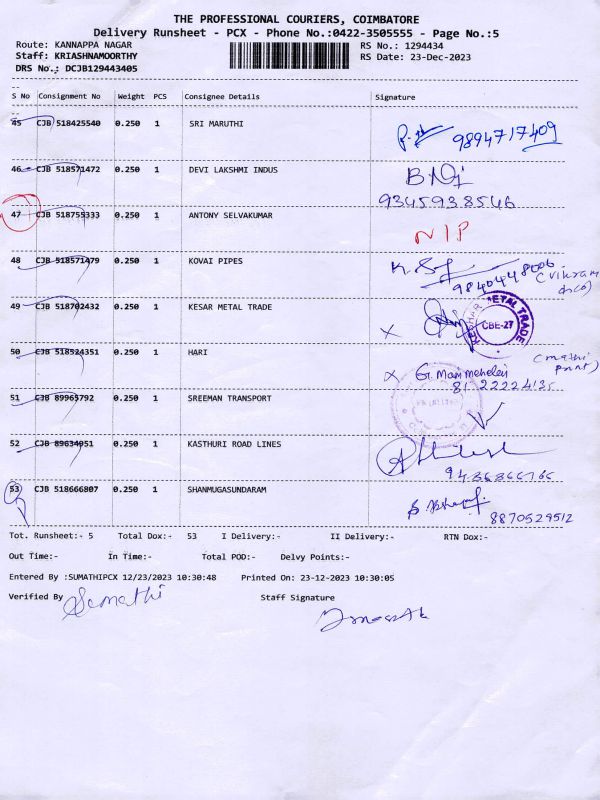 THE PROFESSIONAL COURIERS, COIMBATORE
Delivery Runsheet - PCX - Phone No.:0422-3505555 - Page No.:5
Route: KANNAPPA NAGAR RS No.: 1294434
Staff: KRIASHNAMOORTHY RS Date: 23-Dec-2023
DRS No.: DCJB129443405
S No Consignment No Weight PCS Consignee Details Signature
45 CJB 518425540 0.250 1 SRI MARUTHI 9894717409
46 CJB 518571472 0.250 1 DEVI LAKSHMI INDUS
9345938546
47 CJB 518755333 0.250 1 ANTONY SELVAKUMAR
NIP
48 CJB 518571479 0.250 1 KOVAI PIPES
(Vikram
49 CJB 518702432 0.250 1 KESAR METAL TRADE X METAL TRADE CBE-27
50 CJB 518524351 0.250 1 HARI (mathi
X print)
51 CJB 89965792 0.250 1 SREEMAN TRANSPORT
52 CJB 89634051 0.250 1 KASTHURI ROAD LINES
53 CJB 518666807 0.250 1 SHANMUGASUNDARAM
8870529512
Tot. Runsheet:- 5 Total Dox:- 53 I Delivery:- II Delivery:- RTN Dox:-
Out Time:- In Time:- Total POD:- Delvy Points:-
Entered By :SUMATHIPCX 12/23/2023 10:30:48 Printed On: 23-12-2023 10:30:05
Verified By Sumathi Staff Signature